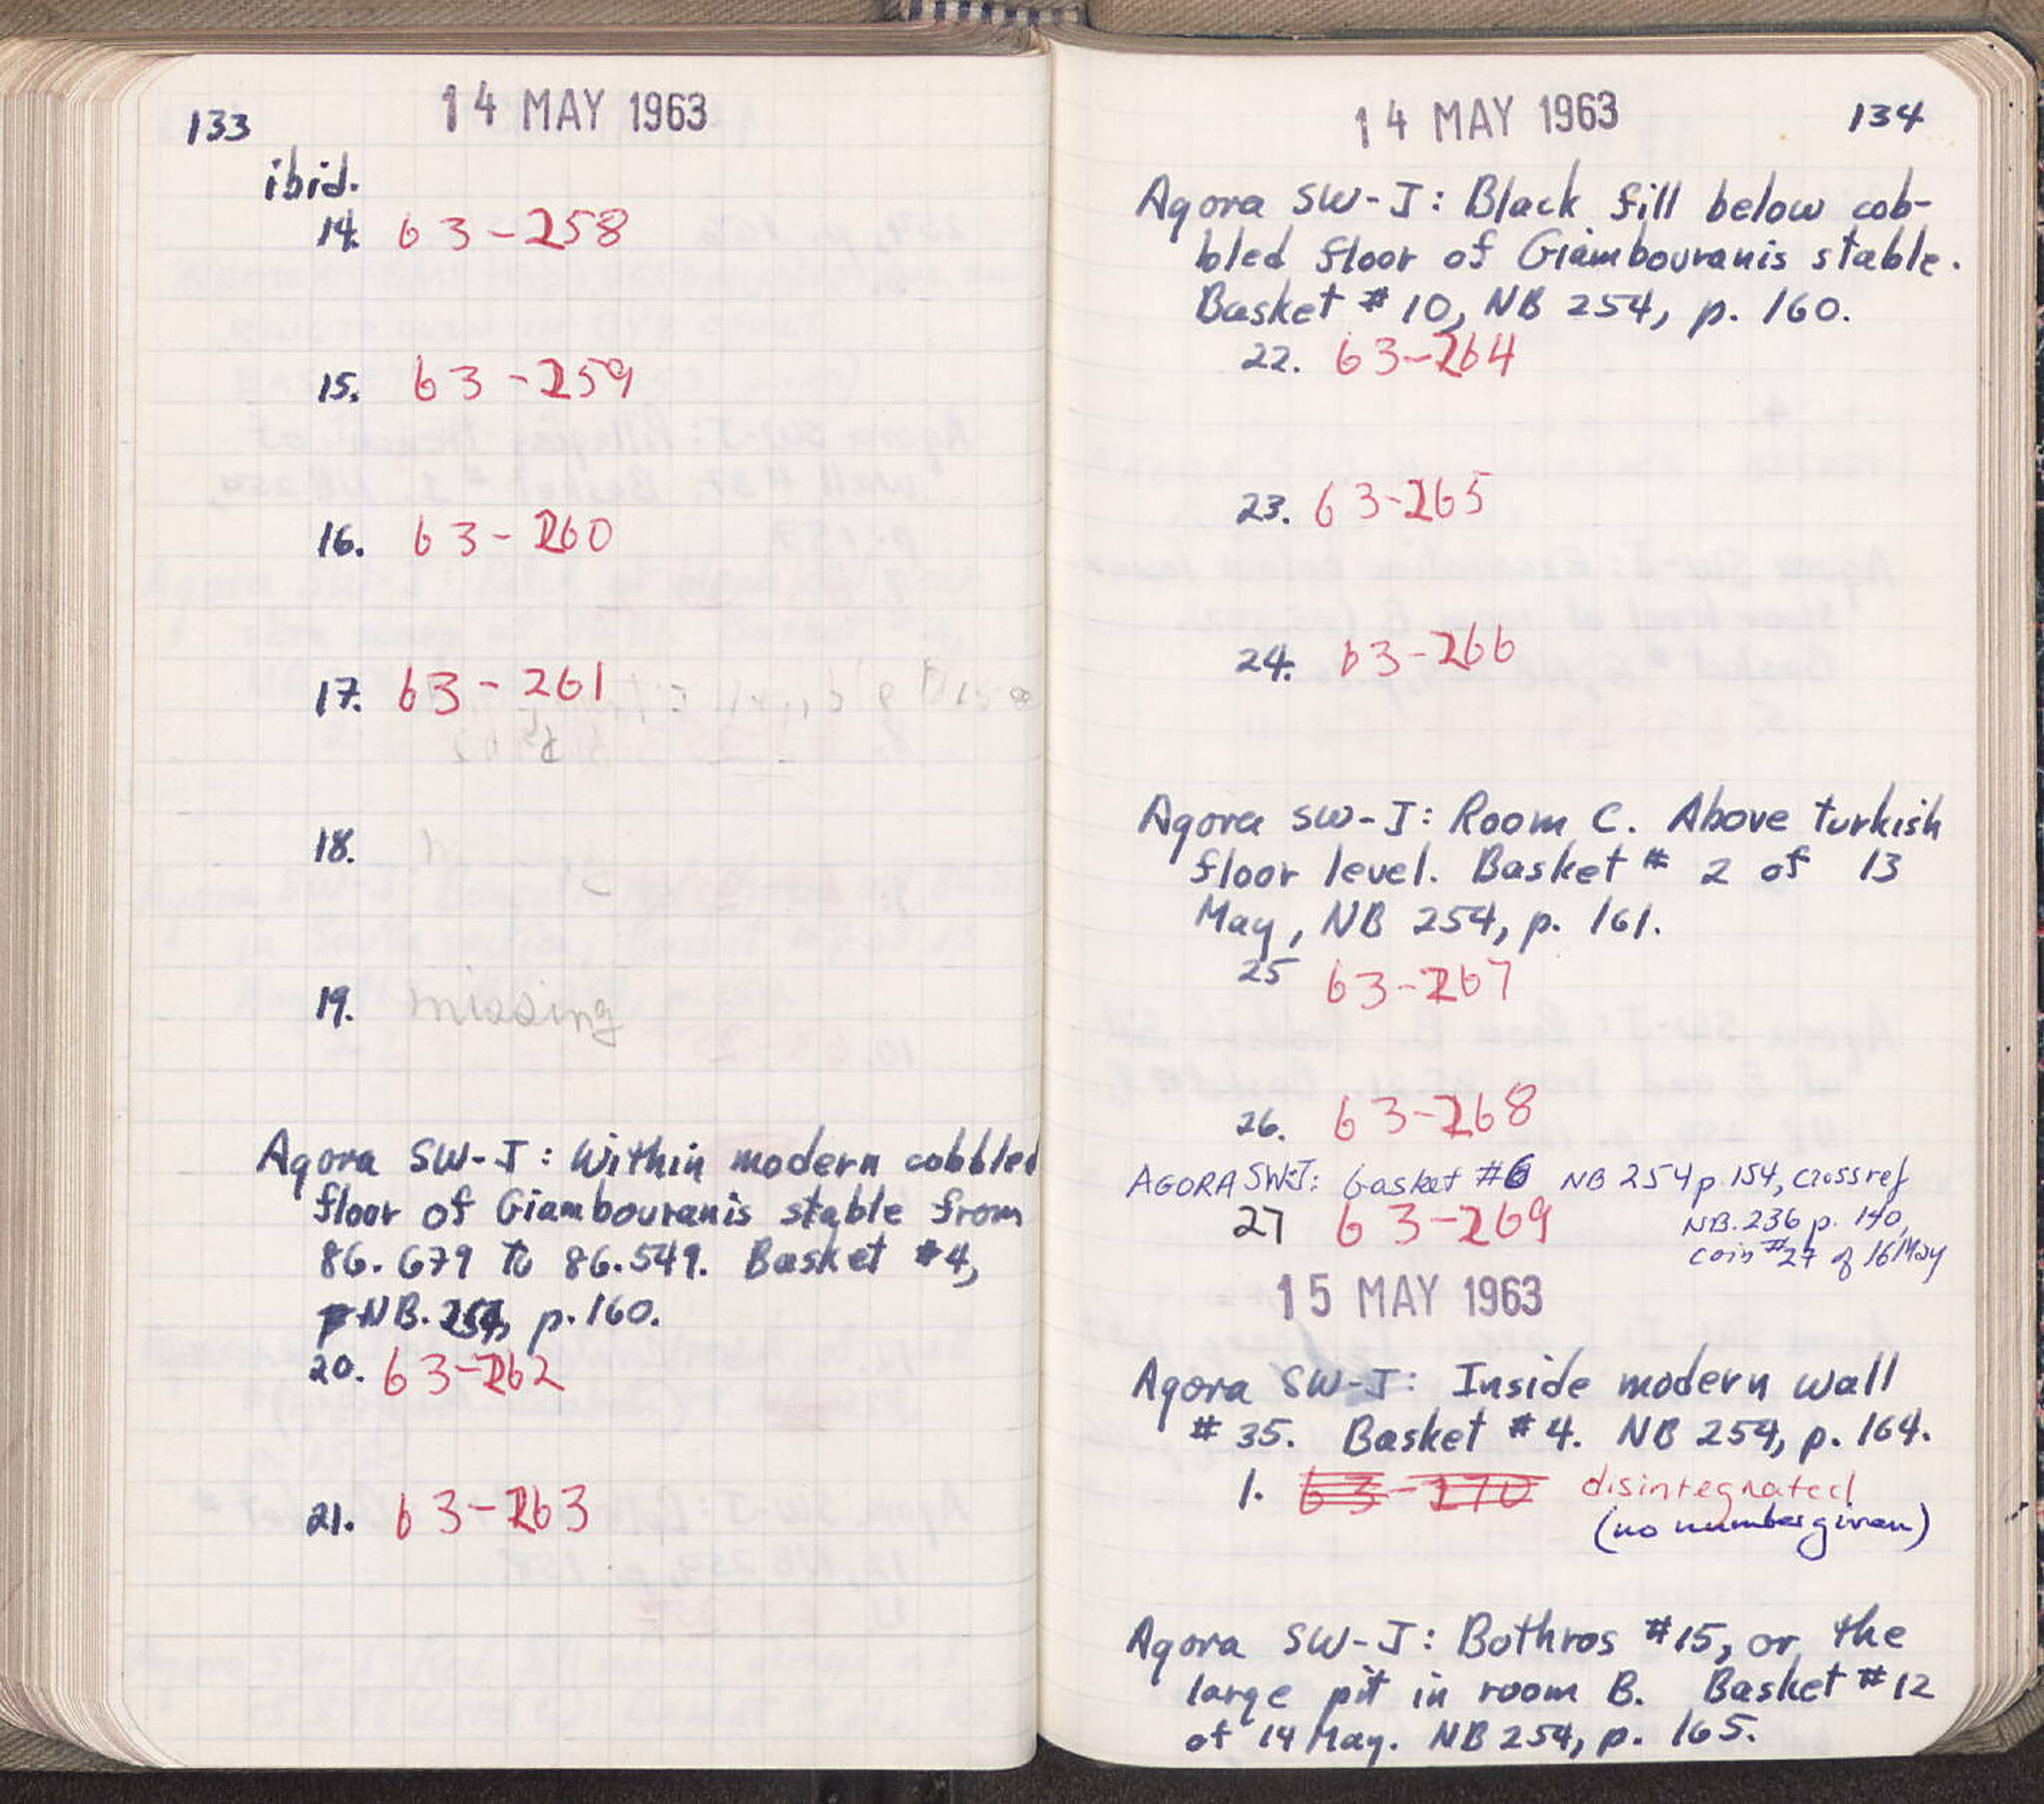 133
14 MAY 1963
ibid.
14. 63-258
15. 63-259
16. 63-260
17. 63-261
18.
19. missing
Agora SW-J: Within modern cobbled
floor of Giambouranis stable from
86.679 to 86.549. Basket #4,
NB. 254, p. 160.
20. 63-262
21. 63-263
14 MAY 1963
134
Agora SW-J: Black fill below cob-
bled floor of Giambouranis stable.
Basket #10, NB 254, p. 160.
22. 63-264
23. 63-265
24. 63-266
Agora SW-J: Room C. Above turkish
floor level. Basket # 2 of 13
May, NB 254, p. 161.
25 63-267
26. 63-268
AGORA SW-J: basket #6 NB 254 p. 154, crossref
27 63-269 NB. 236 p. 140,
coin #27 of 16 May
15 MAY 1963
Agora SW-J: Inside modern wall
# 35. Basket #4. NB 254, p. 164.
1. 63-270 disintegrated
(no number given)
Agora SW-J: Bothros #15, or the
large pit in room B. Basket #12
of 14 May. NB 254, p. 165.